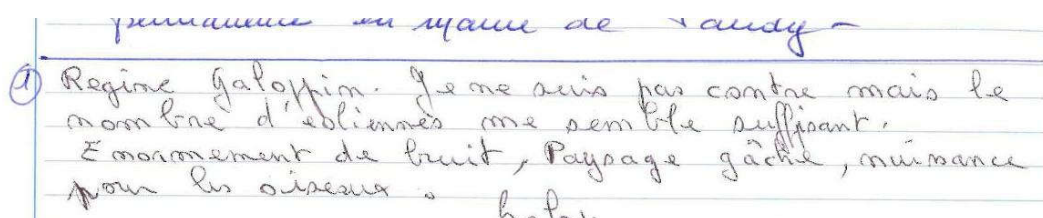 permanence en Mairie de Paudy -
① Regine Galoppin. Je ne suis pas contre mais le
nombre d'éoliennes me semble suffisant.
Enormement de bruit, Paysage gâché, nuisance
pour les oiseaux.